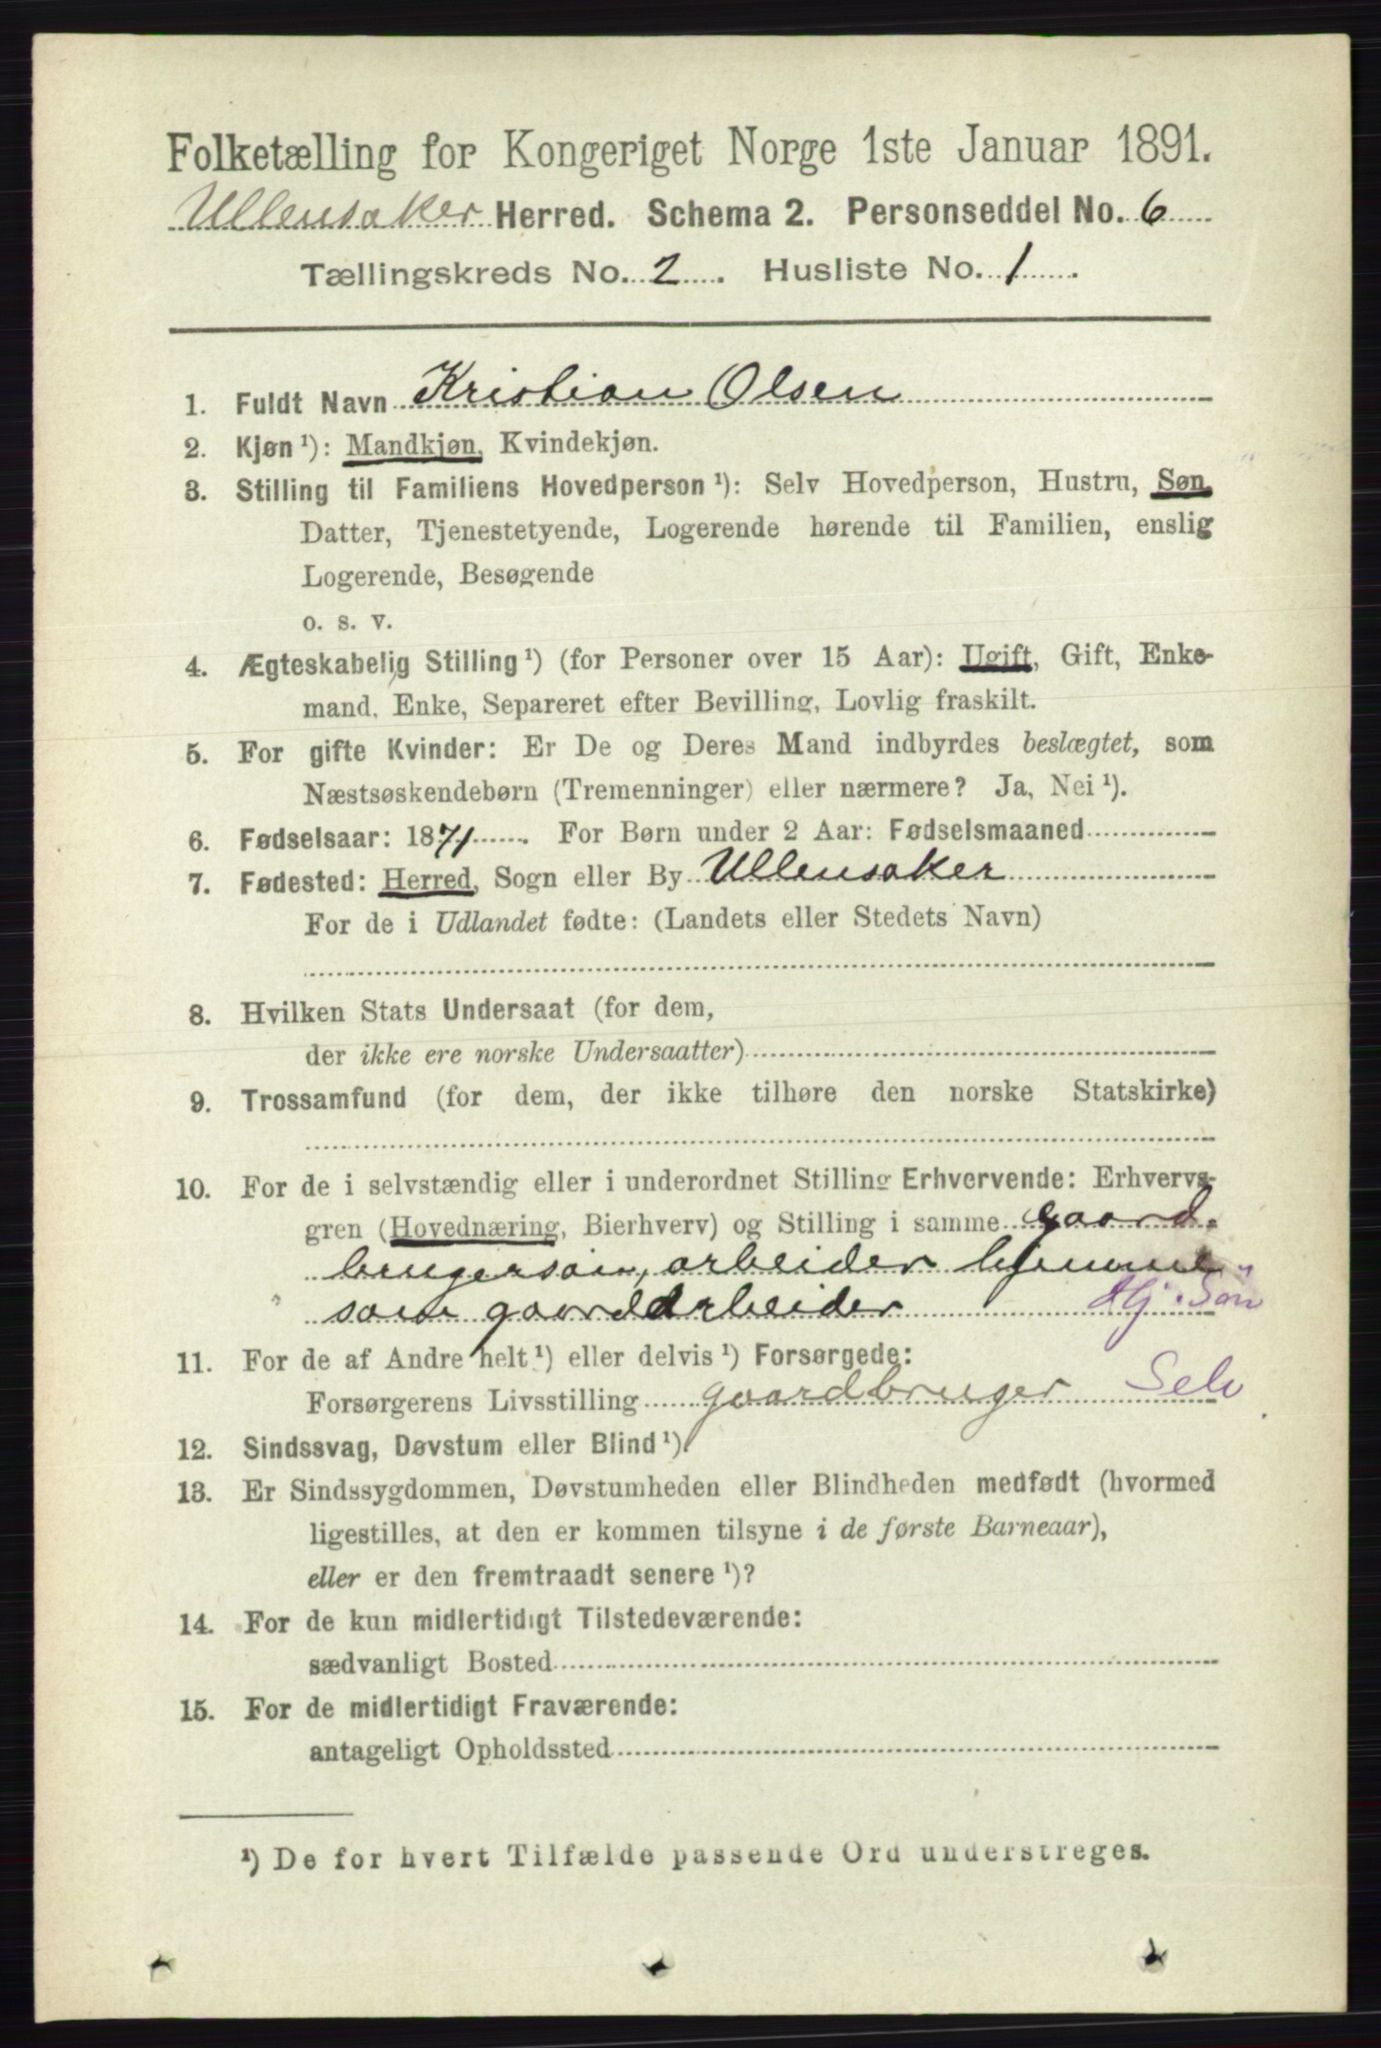 Folketælling for Kongeriget Norge 1ste Januar 1891.
Ullensaker Herred. Schema 2. Personseddel No. 6
Tællingskreds No. 2. Husliste No. 1.
1. Fuldt Navn Kristian Olsen
2. Kjøn ¹): Mandkjøn, Kvindekjøn.
3. Stilling til Familiens Hovedperson ¹): Selv Hovedperson, Hustru, Søn,
Datter, Tjenestetyende, Logerende hørende til Familien, enslig
Logerende, Besøgende
o. s. v.
4. Ægteskabelig Stilling ¹) (for Personer over 15 Aar): Ugift, Gift, Enke-
mand, Enke, Separeret efter Bevilling, Lovlig fraskilt.
5. For gifte Kvinder: Er De og Deres Mand indbyrdes beslægtet, som
Næstsøskendebørn (Tremenninger) eller nærmere? Ja, Nei ¹).
6. Fødselsaar: 1871. For Børn under 2 Aar: Fødselsmaaned
7. Fødested: Herred, Sogn eller By Ullensaker
For de i Udlandet fødte: (Landets eller Stedets Navn)
8. Hvilken Stats Undersaat (for dem,
der ikke ere norske Undersaatter)
9. Trossamfund (for dem, der ikke tilhøre den norske Statskirke)
10. For de i selvstændig eller i underordnet Stilling Erhvervende: Erhvervs-
gren (Hovednæring, Bierhverv) og Stilling i samme gaard-
brugersøn, arbeider hjemme
som gaardarbeider Hj. Søn
11. For de af Andre helt ¹) eller delvis ¹) Forsørgede:
Forsørgerens Livsstilling gaardbruger Selv
12. Sindssvag, Døvstum eller Blind ¹).
13. Er Sindssygdommen, Døvstumheden eller Blindheden medfødt (hvormed
ligestilles, at den er kommen tilsyne i de første Barneaar),
eller er den fremtraadt senere ¹)?
14. For de kun midlertidigt Tilstedeværende:
sædvanligt Bosted
15. For de midlertidigt Fraværende:
antageligt Opholdssted
¹) De for hvert Tilfælde passende Ord understreges.